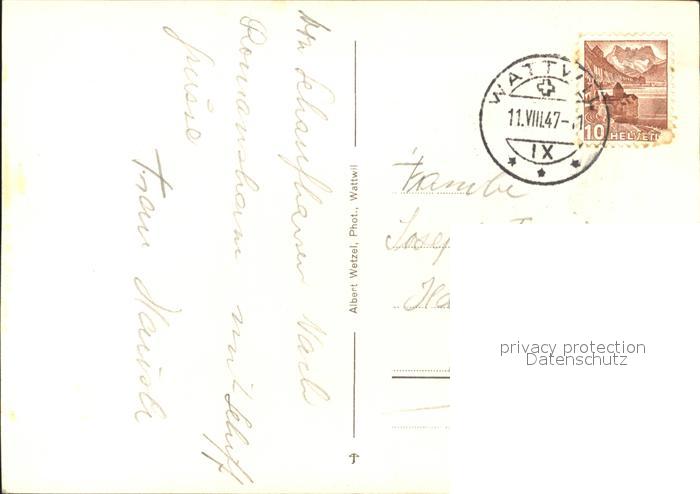 von Schaufhausen Nach
Romanshorn mit Schiff
Frau
Albert Wetzel, Phot., Wattwil
WATTWIL
11.VIII.47-
IX
10
HELVETIA
Familie
Josef
privacy protection
Datenschutz